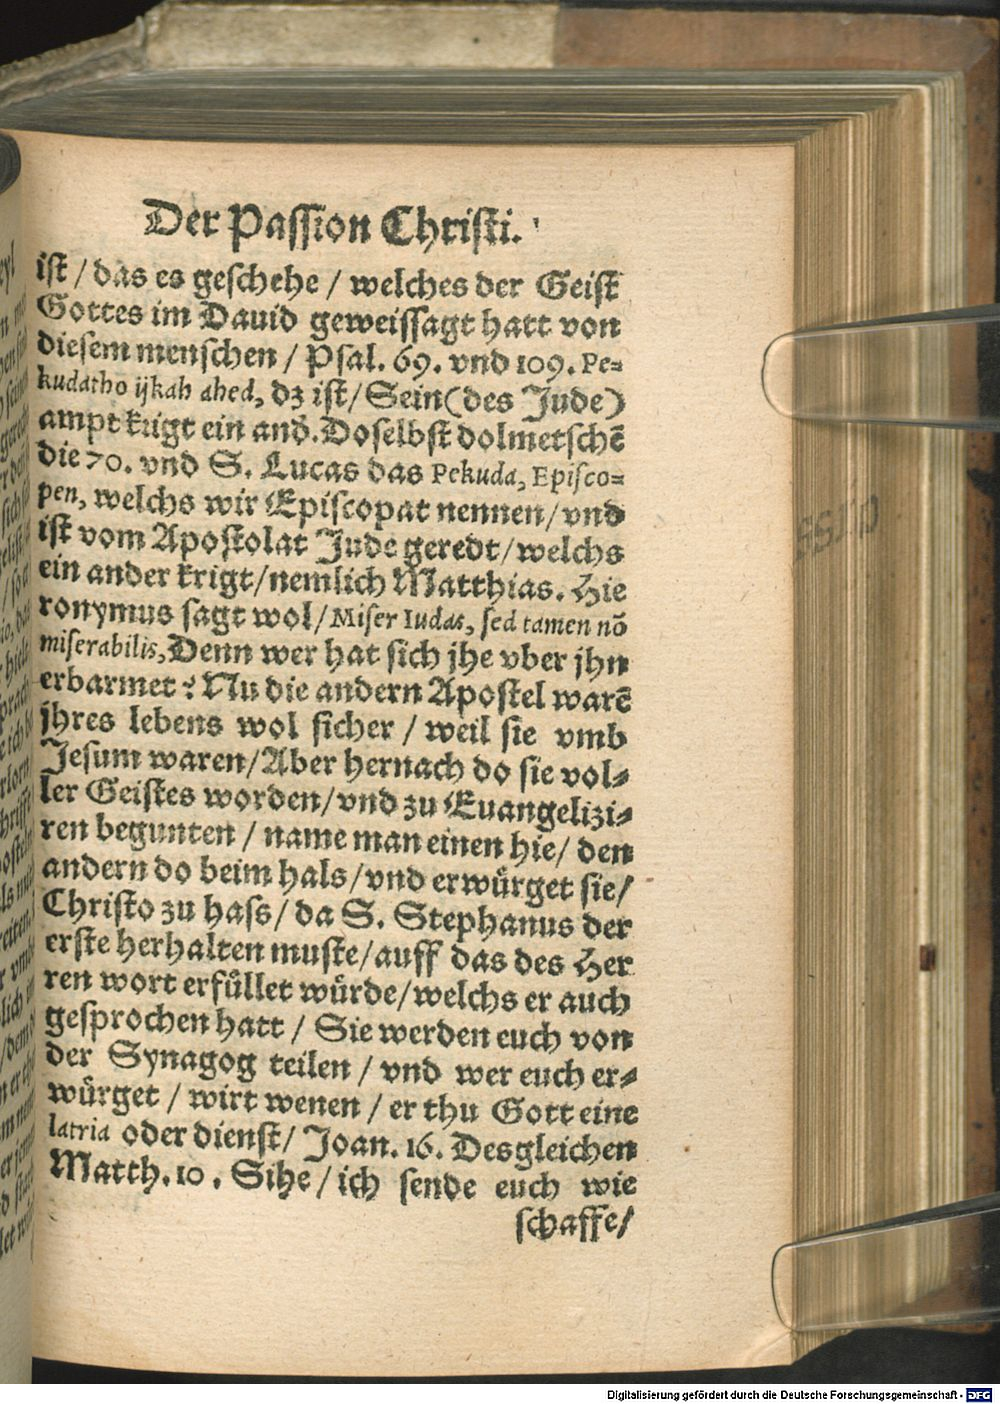 Der Passion Christi.
ist / das es geschehe / welches der Geist
Gottes im Dauid geweissagt hatt von
diesem menschen / Psal. 69. vnd 109. Pe-
kudatho ijkah ahed, dz ist / Sein (des Jude)
ampt krigt ein and̄. Doselbst dolmetschē
die 70. vnd S. Lucas das Pekuda, Episco-
pen, welchs wir Episcopat nennen / vnd
ist vom Apostolat Jude geredt / welchs
ein ander krigt / nemlich Matthias. Hie
ronymus sagt wol / Miser Iudas, sed tamen nō
miserabilis, Denn wer hat sich jhe vber jhn
erbarmet? Nu die andern Apostel warē
jhres lebens wol sicher / weil sie vmb
Jesum waren / Aber hernach do sie vol-
ler Geistes worden / vnd zu Euangelizi-
ren begunten / name man einen hie / den
andern do beim hals / vnd erwürget sie /
Christo zu hass / da S. Stephanus der
erste herhalten muste / auff das des Her
ren wort erfüllet würde / welchs er auch
gesprochen hatt / Sie werden euch von
der Synagog teilen / vnd wer euch er-
würget / wirt wenen / er thu Gott eine
latria oder dienst / Joan. 16. Desgleichen
Matth. 10. Sihe / ich sende euch wie
schaffe /
Digitalisierung gefördert durch die Deutsche Forschungsgemeinschaft - DFG